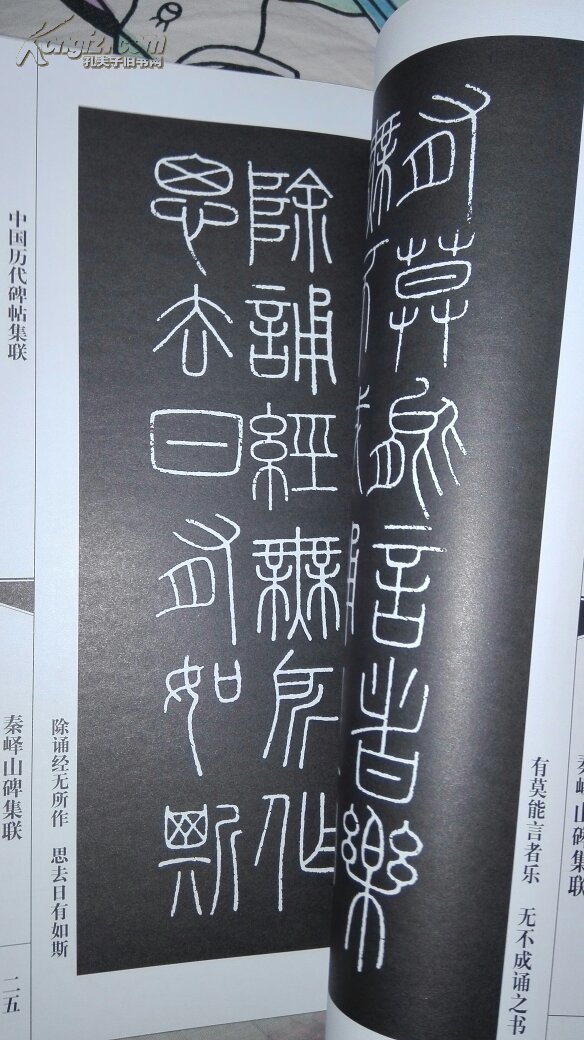 Kongfz.com
孔夫子旧书网
中国历代碑帖集联
秦峄山碑集联
二五
除诵经无所作 思去日有如斯
除誦經無所作
思去日有如斯
有莫能言者樂
無不成誦
有莫能言者乐 无不成诵之书
秦峄山碑集联